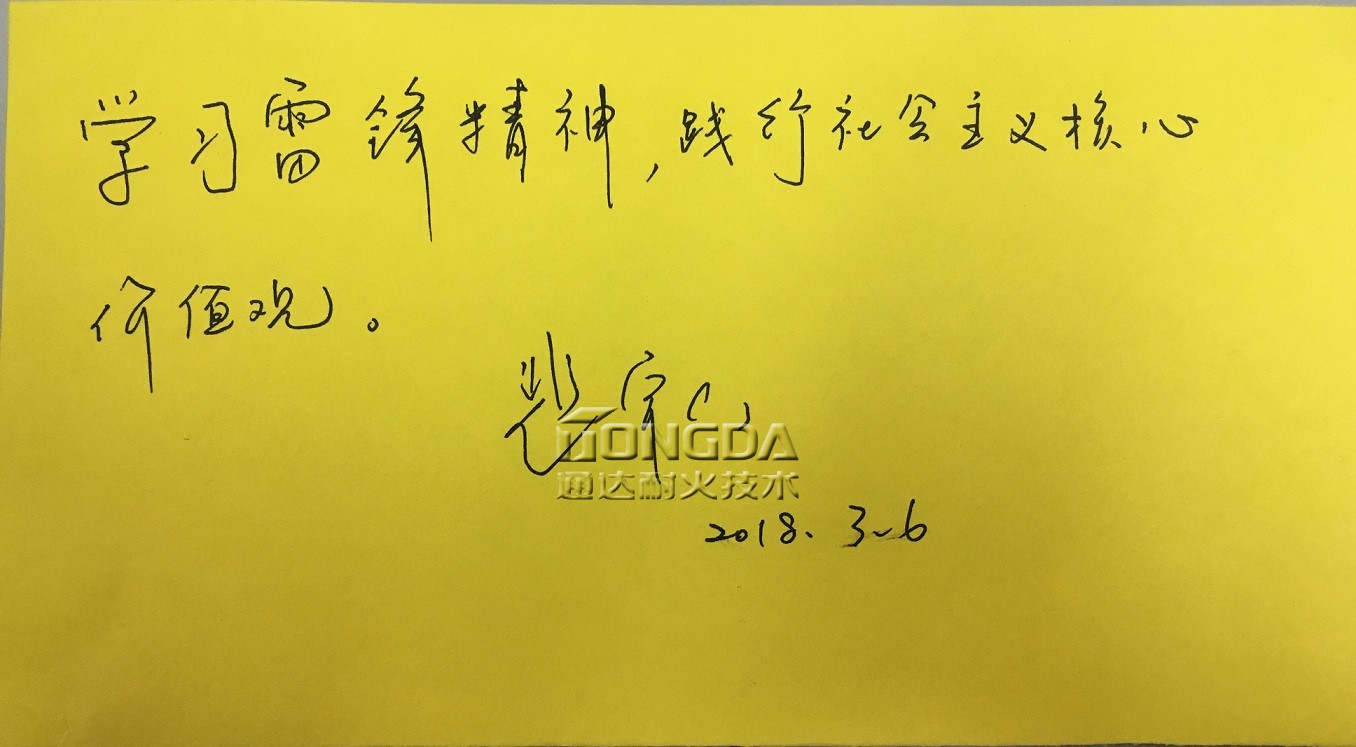 学习雷锋精神，践行社会主义核心
价值观。
TONGDA
通达耐火技术
2018. 3.6